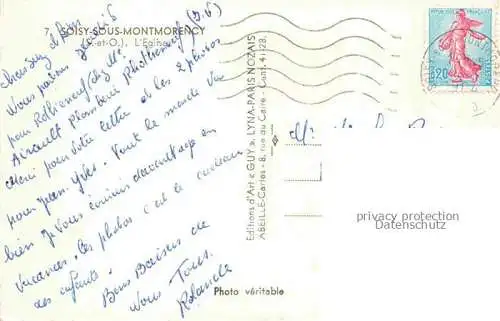 7. SOISY-SOUS-MONTMORENCY
(S.-et-O.) L'Eglise
Nous partons jeudi 6
pour Rothéneuf chez Mr
Airault Plombier Rothéneuf (I.V)
Merci pour votre lettre et les 2 photos
pour Jean-Yves. Tout le monde va
bien je vous écrirai davantage en
vacances. Les photos c'est le cadeau
des enfants.
Bons Baisers de
Nous Tous.
Rolande
Editions d'Art « GUY », LYNA-PARIS NOZAIS
ABEILLE-Cartes - 8, rue du Caire - Cent. 41-28.
Photo véritable
REPUBLIQUE FRANÇAISE
0,20
POSTES
privacy protection
Datenschutz